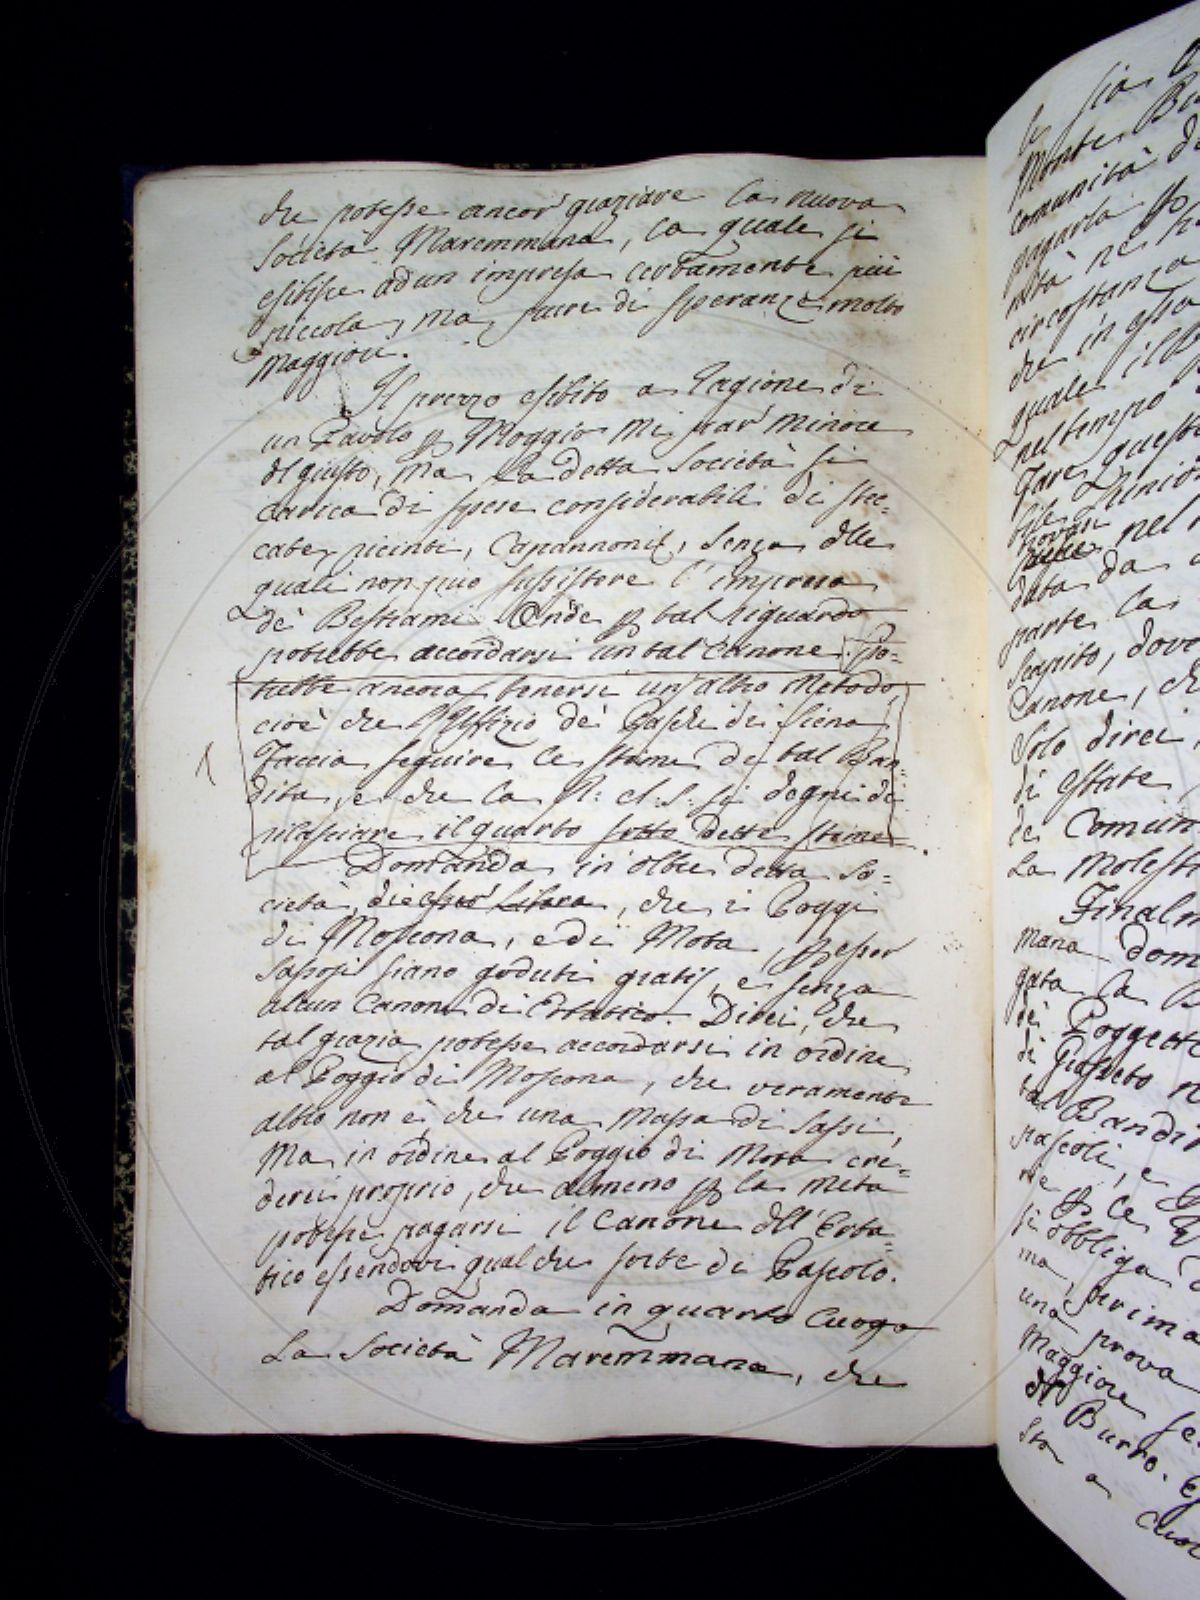 che potesse ancor graziare la nuova
Società Maremmana, la quale si
esibisce ad un impresa certamente più
piccola, ma pure di speranze molto
Maggiori.
Il prezzo esibito a ragione di
un Pavolo p Moggio mi par Minore
del giusto, Ma la detta Società si
carica di spese considerabili di stec-
cate, ricinti, Capannoni, senza delle
quali non può sussistere l'impresa
de' Bestiami Onde p tal riguardo
potrebbe accordarsi un tal Canone. Po-
trebbe ancora tenersi un'altro Metodo,
cioè che l'Uffizio de' Paschi di Siena
Faccia seguire le stime di tal Ban-
dita, e che la R: A: S: si degni di
rilasciare il quarto sotto dette stime
Domanda in oltre detta So-
cietà, che i Poggi
di Moscona, e di Mota, p esser
Sassosi siano goduti gratis, e senza
alcun Canone di Erbatico. Direi, che
tal grazia potesse accordarsi in ordine
al Poggio di Moscona, che veramente
altro non è, che una Massa di Sassi,
Ma in ordine al Poggio di Mota cre-
derei proprio, che almeno p la metà
potesse pagarsi il Canone dell'Erba-
tico essendovi qualche sorte di Pascolo.
Domanda in quarto luogo
La Società Maremmana, che
sia
Monte
Comunità
pagarla
circostanza
che in
quale il
nel tempo
Fare questi
nel
data da
parte la
Scapito, dove
Canone, che
Solo direi,
di Estate
de' Comun
La Molesti
Finalm
mana dom
gata la
de' Poggetti
di Grosseto
tal Bandit
pascoli, e
p le
si obbliga
ma, prima
una prova
Maggiore se
di Burro.
sto a